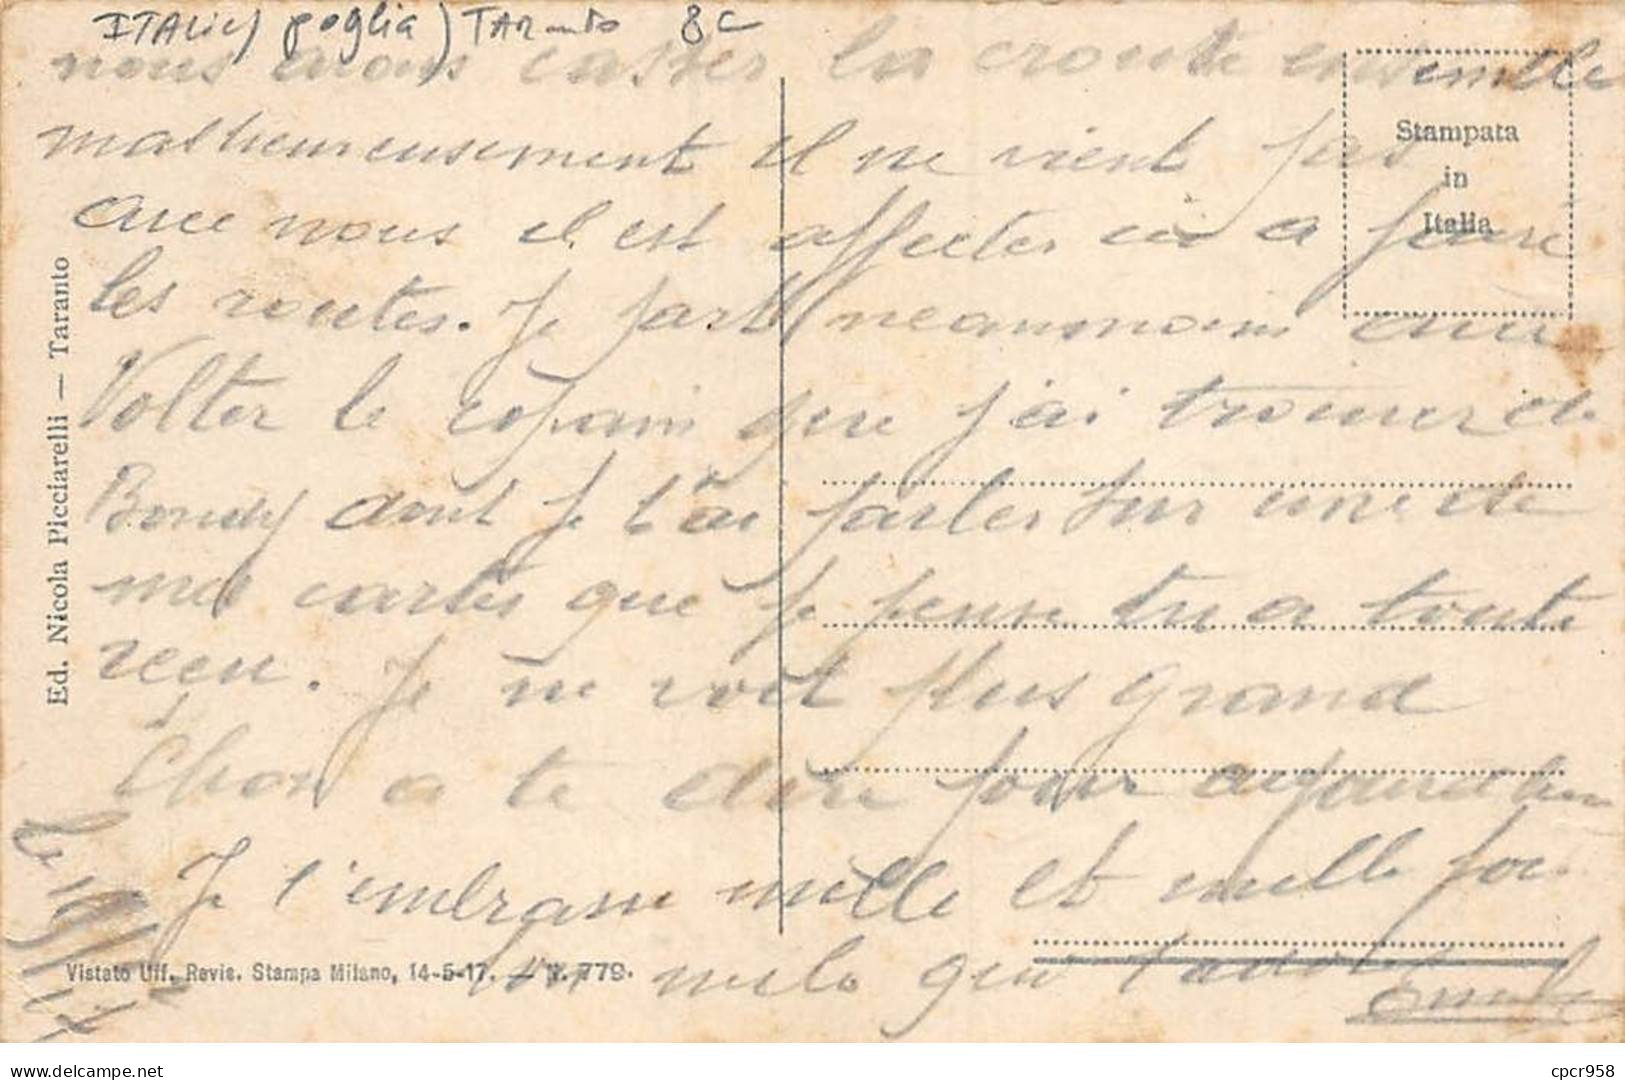 ITALie) poglia) TARanto 8C
nous avons casser la croute ensemble
malheureusement il ne vient pas
avec nous il est affecter ici a faire
les routes. Je part neanmoins avec
Volter le copain que j'ai trouver de
Bondy dont je t'ai parler sur une de
mes cartes que je pense tu a toute
reçu. Je ne voit plus grand
Chose a te dire pour aujourd'hui
Je t'embrasse mille et mille fois
ton milo qui t'adore
Emile
Stampata
in
Italia
Ed. Nicola Picciarelli — Taranto
Vistato Uff. Revis. Stampa Milano, 14-5-17. — N. 779.
cpcr958
delcampe.net